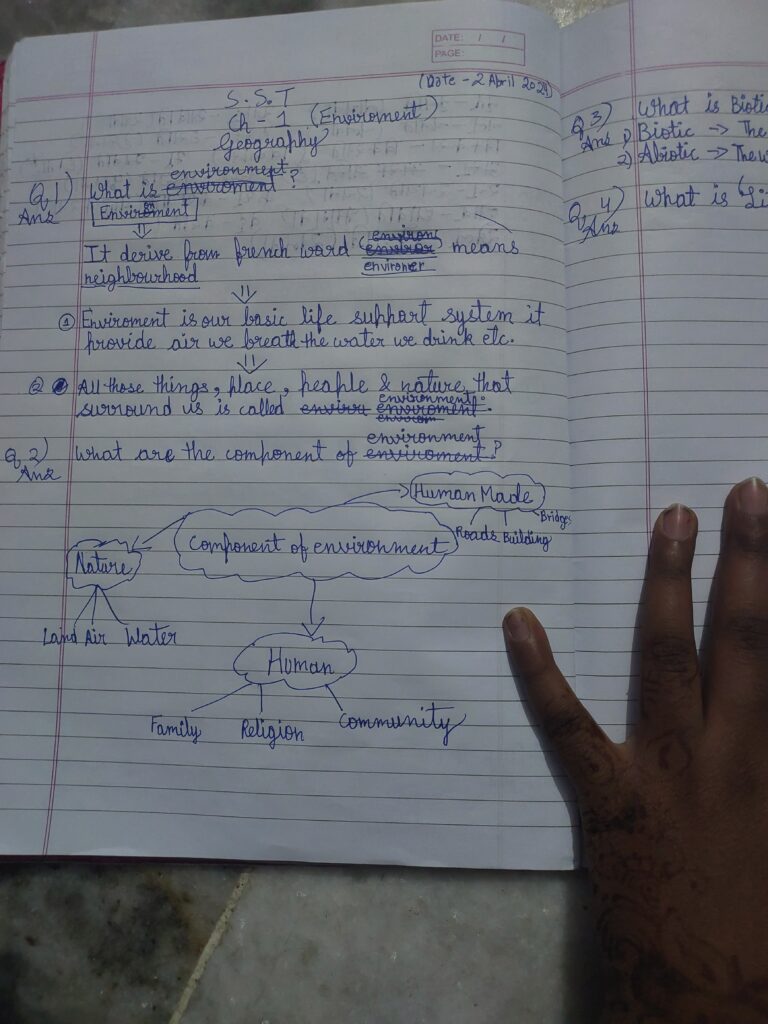 DATE: / /
PAGE:
(Date - 2 Abril 2024)
S. S. T
Ch - 1 (Enviroment)
Geography
environment
Q1) What is enviroment?
Ans Enviroment
It derive from french word (environ enviror means
neighbourhood environer
① Enviroment is our basic life support system it
provide air we breath the water we drink etc.
② All those things, place, people & nature that
environment.
surround us is called envirra enviroment.
environ
environment
Q2) What are the component of enviroment?
Ans
Human Made
Roads Building Bridges
Component of environment
Nature
Land Air Water
Human
Family Religion Community
Q3) What is Bioti
Ans 1) Biotic -> The
2) Abiotic -> The w
Q4) What is "Li
Ans